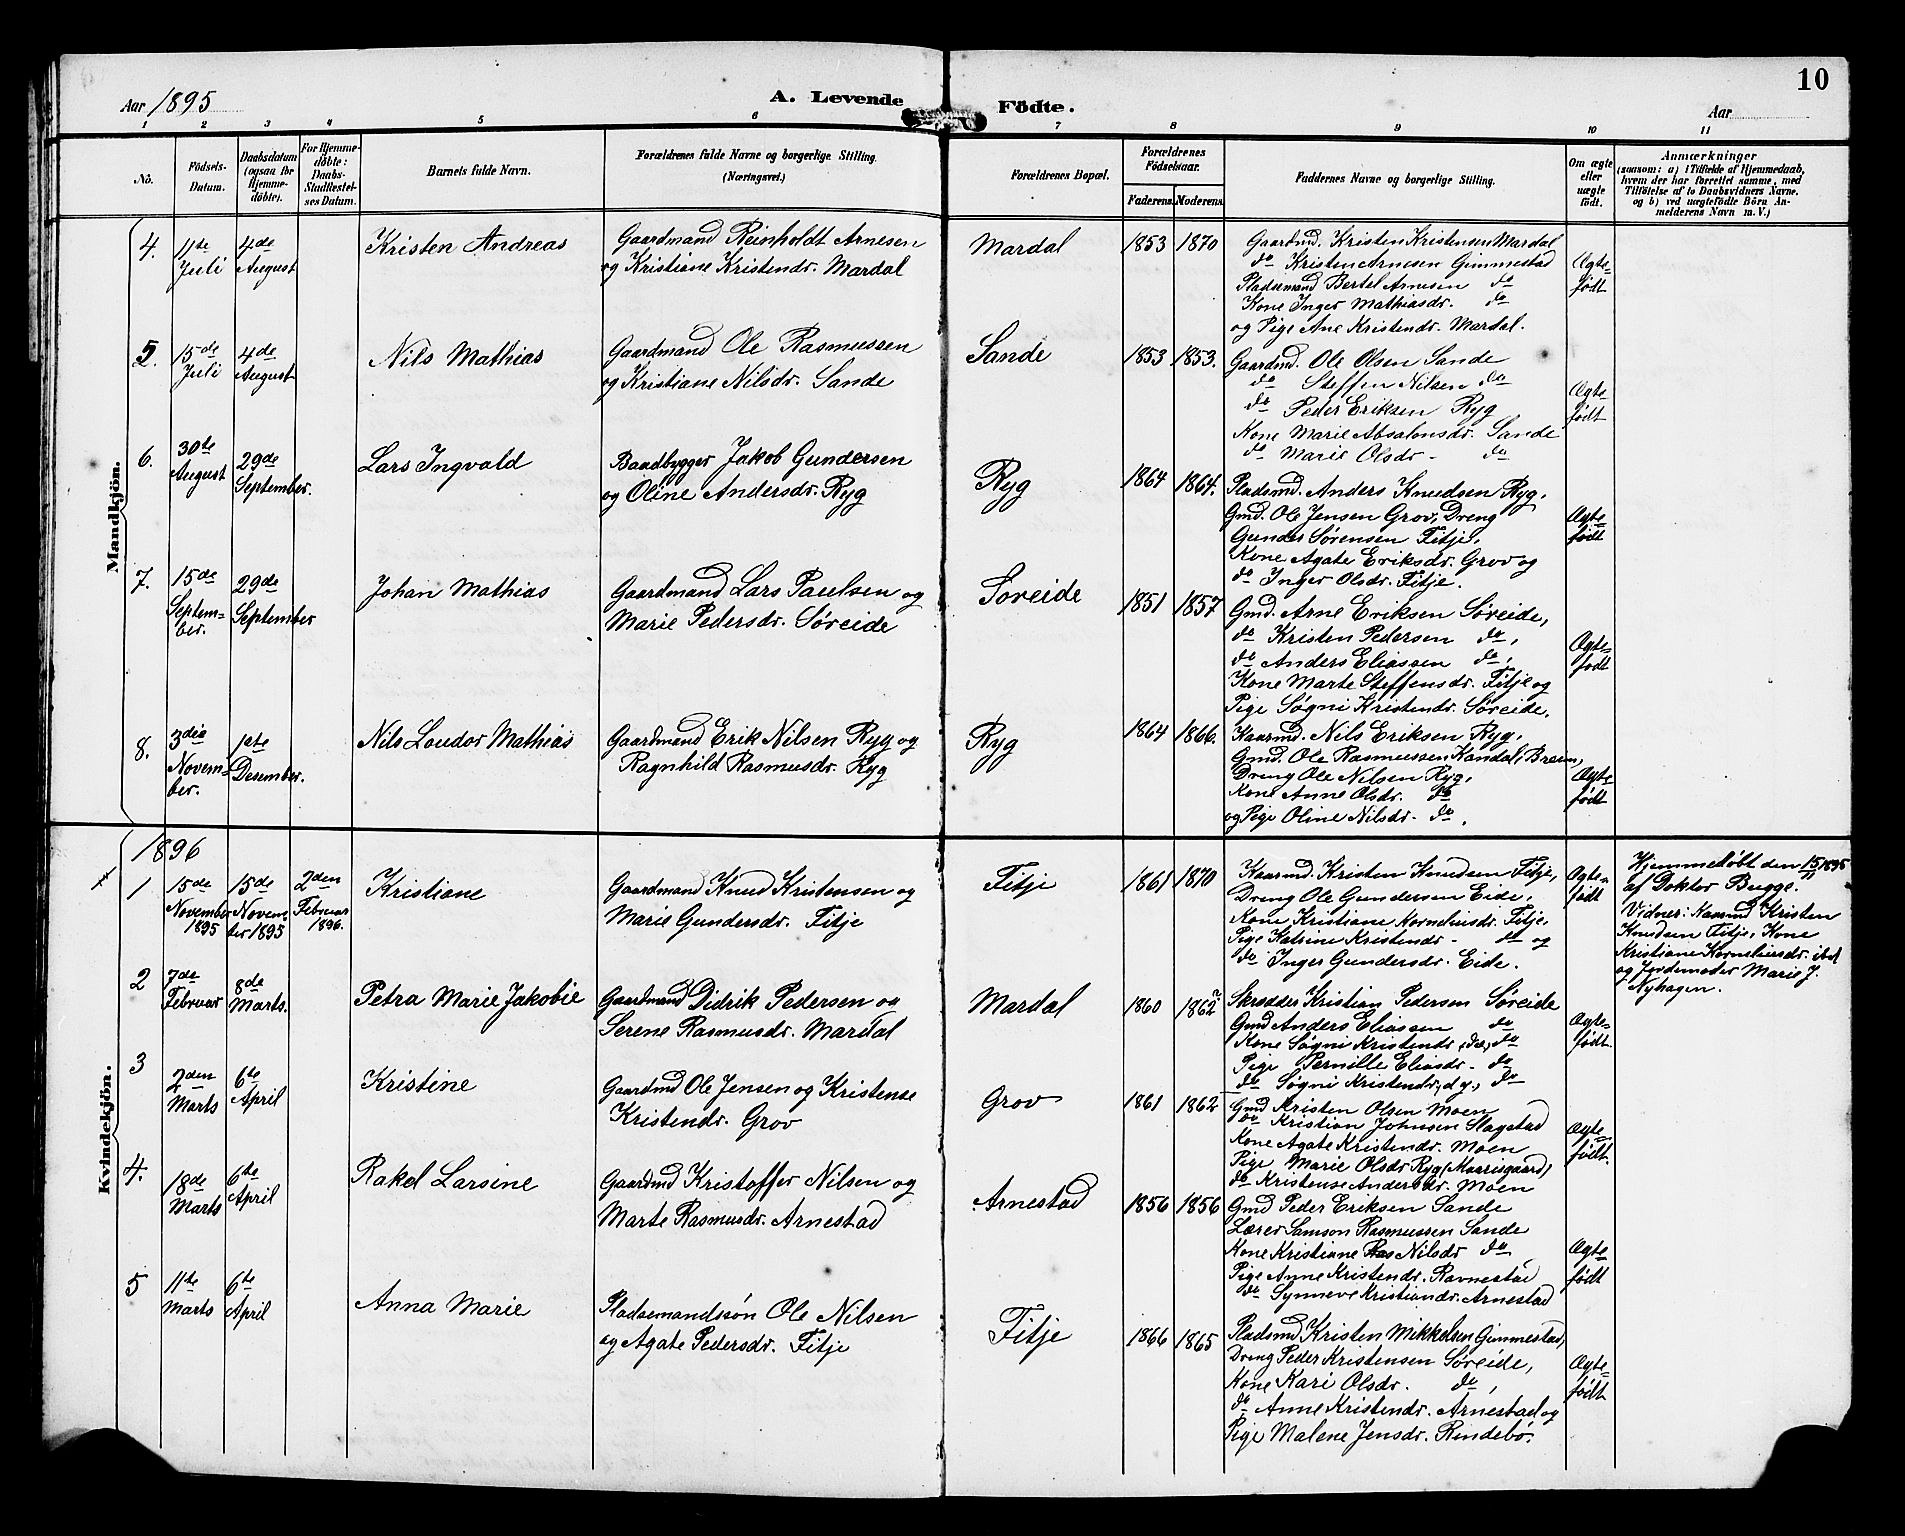 10
Aar 1895
A. Levende
Födte.
Aar
1 2 3 4 5 6 7 8 9 10 11
No.
Födsels-
Datum.
Daabsdatum
(ogsaa for
Hjemme-
döbte).
For Hjemme-
döbte:
Daabs-
Stadfæstel-
ses Datum.
Barnets fulde Navn.
Forældrenes fulde Navne og borgerlige Stilling.
(Næringsvei.)
Forældrenes Bopæl.
Forældrenes
Födselsaar.
Faderens.
Moderens.
Faddernes Navne og borgerlige Stilling.
Om ægte
eller
uægte
født.
Anmærkninger
(saasom: a) i Tilfælde af Hjemmedaab,
hvem der har forrettet samme, med
Tilföielse af to Daabsvidners Navne.
og b) ved uægtefödte Börn An-
melderens Navn m. V.)
Mandkjön.
4.
11te
Juli
4de
August
Kristen Andreas
Gaardmand Reinholdt Arnesen
og Kristiane Kristendr. Mardal
Mardal
1853
1870
Gaardmd. Kristen Kristensen Mardal
do Kristen Arnesen Gimmestad
Pladsemand Bertel Arnesen do
Kone Inger Mathiasdr. do
og Pige Ane Kristendr. Mardal.
Ægte-
født
5.
15de
Juli
4de
August
Nils Mathias
Gaardmand Ole Rasmussen
og Kristiane Nilsdr. Sande
Sande
1853
1853.
Gaardmd. Ole Olsen Sande
do Steffen Nilsen do
do Peder Eriksen Ryg
Kone Marie Absalonsdr. Sande
do Marie Olsdr - do
Ægte-
født
6.
30te
August
29de
September.
Lars Ingvald
Baadbygger Jakob Gundersen
og Oline Andersdr. Ryg
Ryg
1864
1864.
Pladsmd. Anders Knudsen Ryg,
Gmd. Ole Jensen Grov, Dreng
Gunder Sørensen Fitje,
Kone Agate Eriksdr. Grov og
do Inger Olsdr. Fitje.
Ægte-
født
7.
15de
Septem-
ber.
29de
September
Johan Mathias
Gaardmand Lars Paulsen og
Marie Pedersdr. Søreide
Søreide
1851
1857
Gmd. Arne Eriksen Søreide,
do Kristen Pedersen do,
do Anders Eliassen do,
Kone Marte Steffensdr. Fitje og
Pige Søgni Kristendr. Søreide.
Ægte-
født
8.
3die
Novem-
ber.
1ste
Desember.
Nils Loudor Mathias
Gaardmand Erik Nilsen Ryg og
Ragnhild Rasmusdr. Ryg
Ryg
1864
1866.
Kaarmd. Nils Eriksen Ryg,
Gmd. Ole Rasmussen Kandal, Breim,
Dreng Ole Nilsen Ryg,
Kone Anne Olsdr. do
og Pige Oline Nilsdr - do.
Ægte-
født
1896
Kvindekjön.
1
15de
November
1895
15de
Novem-
ber 1895
2den
Februar
1896.
Kristiane
Gaardmand Knud Kristensen og
Marie Gundersdr. Fitje
Fitje
1861
1870
Kaarmd. Kristen Knudsen Fitje,
Dreng Ole Gundersen Eide,
Kone Kristiane Korneliusdr. Fitje,
Pige Katrine Kristendr - do og
do Inger Gundersdr. Eide.
Ægte-
født
Hjemmedøbt den 15/11 1895
af Doktor Bugge.
Vidner: Kaarmd Kristen
Knudsen Fitje, Kone
Kristiane Korneliusdr. ibd
og Jordemoder Marie J.
Nyhagen.
2
7de
Februar
8de
Marts.
Petra Marie Jakobie
Gaardmand Didrik Pedersen og
Serene Rasmusdr. Mardal
Mardal
1860
1862
Skrædder Kristian Pedersen Søreide
Gmd Anders Eliassen do
Kone Søgni Kristendr, do
Pige Pernille Eliasdr. do
do Søgni Kristendr, d.y., do
Ægte-
født.
3
2den
Marts
6te
April
Kristine
Gaardmd Ole Jensen og Kristense
Kristendr. Grov
Grov
1861
1862
Gmd Kristen Olsen Moen
do Kristian Johnsen Slagstad
Kone Agate Kristendr. Moen
Pige Marie Olsdr Ryg (Morrisgaard)
do Kristense Andersdr. Moen
Ægte-
født.
4.
18de
Marts
6te
April
Rakel Larsine
Gaardmd Kristoffer Nilsen og
Marte Rasmusdr. Arnestad
Arnestad
1856
1856
Gmd Peder Eriksen Sande
Lærer Samson Rasmussen Sande
Kone Kristiane Nilsdr do
Pige Anne Kristendr. Ravnestad
do Synneve Kristiandr. Arnestad
Ægte-
født
5
11te
Marts
6te
April
Anna Marie
Pladsemandssøn Ole Nilsen
og Agate Pedersdr. Fitje
Fitje
1866
1865
Pladsmd Kristen Mikkelsen Gimmestad,
Dreng Peder Kristensen Søreide,
Kone Kari Olsdr. do,
do Anne Kristendr. Arnestad og
Pige Malene Jensdr. Rindebø.
Ægte-
født